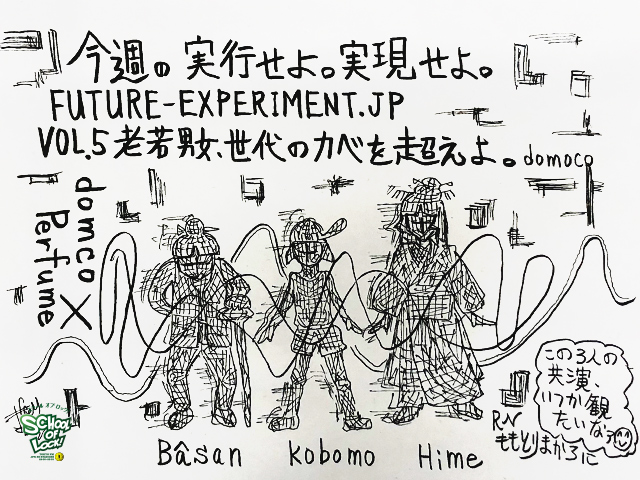 今週の 実行せよ。実現せよ。
FUTURE-EXPERIMENT.JP
VOL.5 老若男女、世代のカベを超えよ。domoco
domco X
Perfume
この3人の
共演、
いつか観
たいなぁ
RN
ももとりまかろに
SCHOOL
OF
LOCK!
Bâsan Kobomo Hime